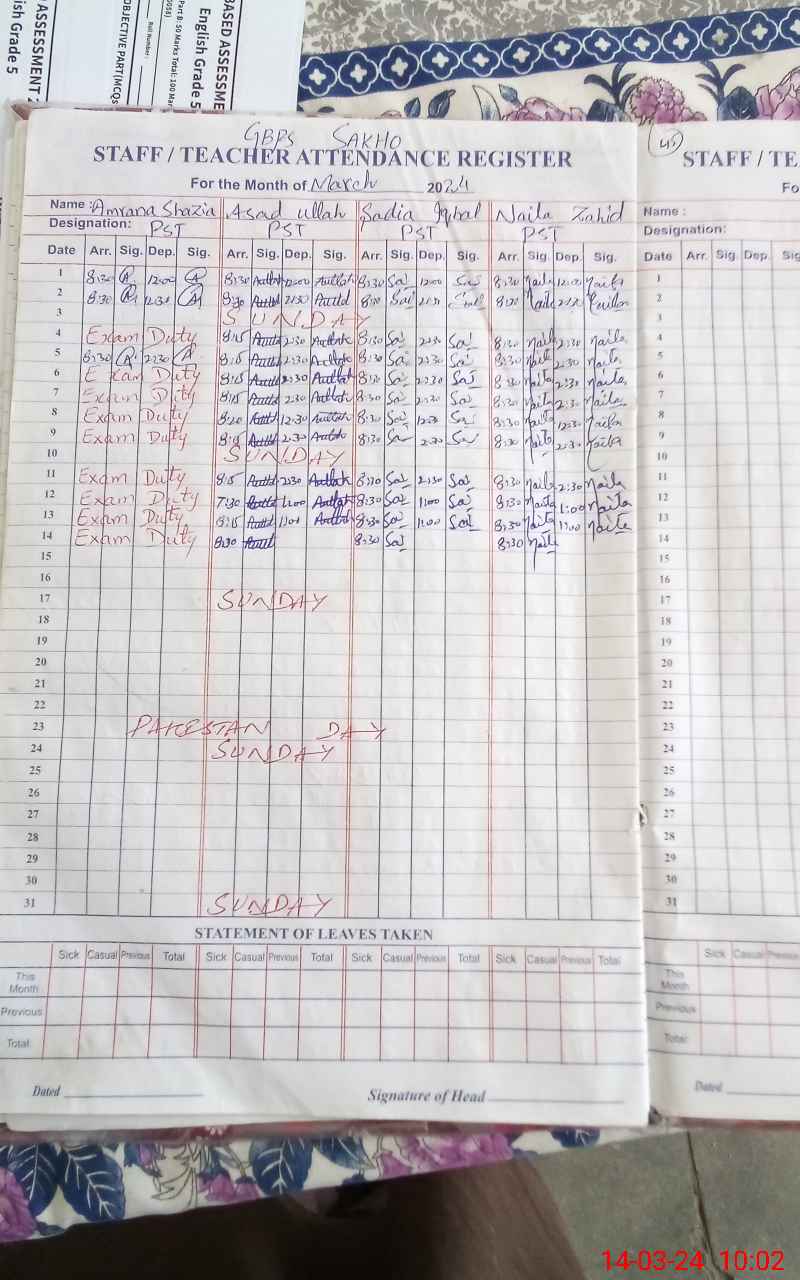 BASED ASSESSMENT
Part B: 50 Marks Total: 100 Mar
English Grade 5
Roll Number:
OBJECTIVE PART(MCQs
ASSESSMENT 2
ish Grade 5
GBPS SAKHO
STAFF / TEACHER ATTENDANCE REGISTER
For the Month of March 2024
Name : Amrana Shazia Asad ullah Sadia Iqbal Naila Zahid
Designation: PST PST PST PST
Date Arr. Sig. Dep. Sig. Arr. Sig. Dep. Sig. Arr. Sig. Dep. Sig. Arr. Sig. Dep. Sig.
1 8:30 A 12:00 A 8:30 12:00 8:30 Sai 12:00 Sai 8:30 Naila 12:00 Naila
2 8:30 A 12:30 A 8:30 8:30 Sai 8:30 Naila
3 SUNDAY
4 Exam Duty 8:15 2:30 8:30 Sai 2:30 Sai 8:30 Naila 2:30 Naila
5 8:30 A 2:30 A 8:15 2:30 8:30 Sai 2:30 Sai 8:30 Naila 2:30 Naila
6 Exam Duty 8:15 2:30 8:30 Sai 2:30 Sai 8:30 Naila 2:30 Naila
7 Exam Duty 8:15 2:30 8:30 Sai 2:30 Sai 8:30 Naila 2:30 Naila
8 Exam Duty 8:20 12:30 8:30 Sai 12:30 Sai 8:30 Naila 12:30 Naila
9 Exam Duty 8:15 2:30 8:30 Sai 2:30 Sai 8:30 Naila 2:30 Naila
10 SUNDAY
11 Exam Duty 8:15 2:30 8:30 Sai 2:30 Sai 8:30 Naila 2:30 Naila
12 Exam Duty 7:30 1:00 8:30 Sai 1:00 Sai 8:30 Naila 1:00 Naila
13 Exam Duty 8:15 1:00 8:30 Sai 1:00 Sai 8:30 Naila 1:00 Naila
14 Exam Duty 8:30 8:30 Sai 8:30 Naila
15
16
17 SUNDAY
18
19
20
21
22
23 PAKESTAN DAY
24 SUNDAY
25
26
27
28
29
30
31 SUNDAY
STATEMENT OF LEAVES TAKEN
Sick Casual Previous Total Sick Casual Previous Total Sick Casual Previous Total Sick Casual Previous Total
This Month
Previous
Total
Dated
Signature of Head
45
STAFF / TE
Fo
Name :
Designation:
Date Arr. Sig. Dep. Sig
1
2
3
4
5
6
7
8
9
10
11
12
13
14
15
16
17
18
19
20
21
22
23
24
25
26
27
28
29
30
31
Sick Casual Previous
This Month
Previous
Total
Dated
14-03-24 10:02